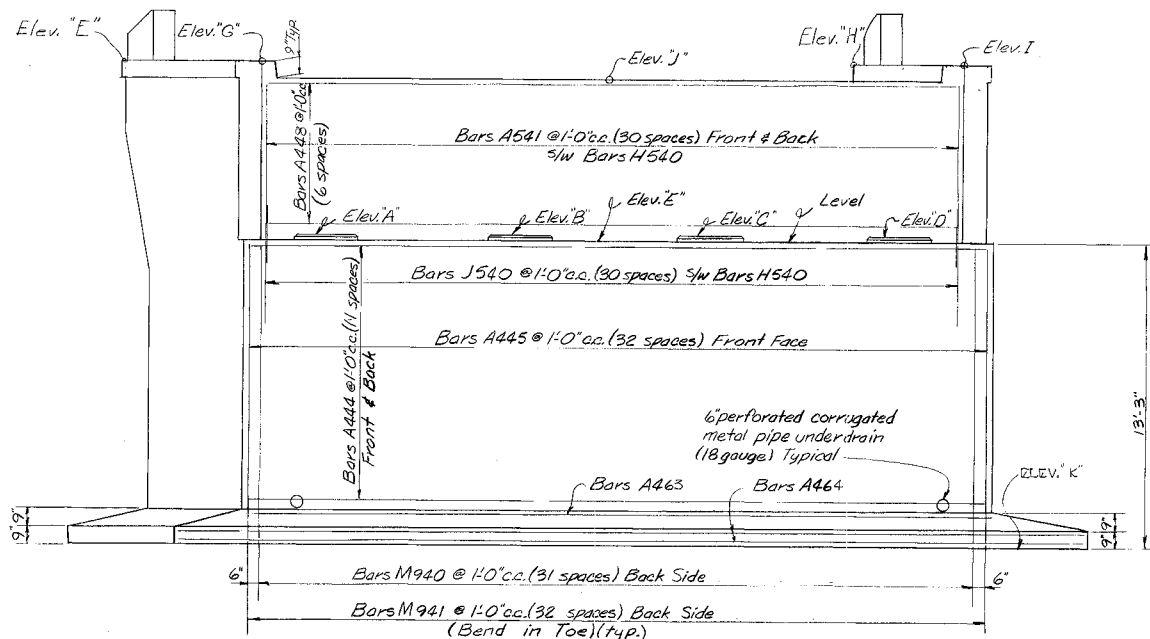 Elev. "E"
Elev."G"
9"Typ.
Elev."J"
Elev."H"
Elev.I
Bars A448 @1'-0"c.c.
(6 spaces)
Bars A541 @1'-0"c.c.(30 spaces) Front & Back
s/w Bars H540
Elev."A"
Elev."B"
Elev."E"
Elev."C"
Level
Elev."D"
Bars J540 @1'-0"c.c.(30 spaces) s/w Bars H540
Bars A445 @ 1'-0"c.c.(32 spaces) Front Face
Bars A444 @1'-0"c.c.(11 spaces)
Front & Back
6"perforated corrugated
metal pipe underdrain
(18 gauge) Typical
13'-3"
Bars A463
Bars A464
ELEV."K"
9"
9"
9"
9"
6"
Bars M940 @ 1'-0"c.c.(31 spaces) Back Side
6"
Bars M941 @ 1'-0"c.c.(32 spaces) Back Side
(Bend in Toe)(typ.)